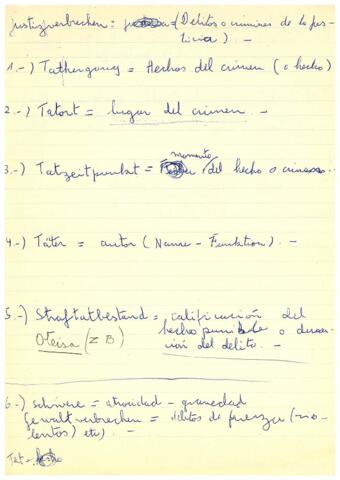 Justizverbrechen: = (Delitos o crimines de la jus-
ticia). —
1.-) Tathergang = Hechos del crimen (o hecho)
2.-) Tatort = lugar del crimen. —
momento
3.-) Tatzeitpunkt = del hecho o crimen
4.-) Täter = autor (Name - Funktion). —
5.-) Straftatbestand = calificación del
hecho punible o
Oteiza (z B) ción del delito. —
6.-) schwere = atrocidad - gravedad
Gewaltverbrechen = delitos de fuerza (vio-
lentos) etc) —
Tat =